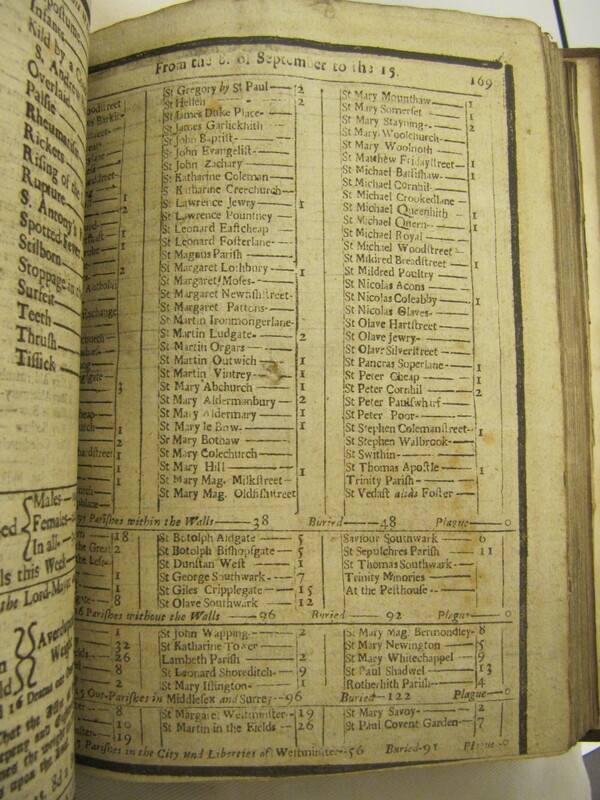 From the 8. of September to the 15. 169
Infants
Kild by a
S. Andrew
Overlaid
Palsie
Rheumatism
Rickets
Rising of the
Rupture
S. Antony's
Spotted Fever
Stilborn
Stoppage in
Surfeit
Teeth
Thrush
Tissick
Males
Females
In all
this Week
the Lord-Mayor
St Gregory by St Paul 2
St Hellen 2
St James Duke Place
St James Garlickhith
St John Baptist
St John Evangelist
St John Zachary
St Katharine Coleman
S Katharine Creechurch
St Lawrence Jewry 1
St Lawrence Pountney
St Leonard Eastcheap
St Leonard Fosterlane
St Magnus Parish
St Margaret Lothbury 1
St Margaret Moses
St Margaret Newfishstreet
St Margaret Pattons
St Martin Ironmongerlane
St Martin Ludgate 2
St Martin Orgars
St Martin Outwich 1
St Martin Vintrey 1
St Mary Abchurch 1
St Mary Aldermanbury 2
St Mary Aldermary 1
St Mary le Bow 1
St Mary Bothaw
St Mary Colechurch
St Mary Hill 1
St Mary Mag. Milkstreet
St Mary Mag. Oldfishstreet
St Mary Mounthaw 1
St Mary Somerset 1
St Mary Stayning 2
St Mary Woolchurch
St Mary Woolnoth
St Matthew Fridaystreet 1
St Michael Bassishaw 1
St Michael Cornhil
St Michael Crookedlane
St Michael Queenhith 1
St Michael Quern 1
St Michael Royal
St Michael Woodstreet
St Mildred Breadstreet 1
St Mildred Poultry
St Nicolas Acons
St Nicolas Coleabby 1
St Nicolas Olaves
St Olave Hartstreet
St Olave Jewry
St Olave Silverstreet
St Pancras Soperlane 1
St Peter Cheap 1
St Peter Cornhil 2
St Peter Paulswharf
St Peter Poor
St Stephen Colemanstreet 1
St Stephen Walbrook
St Swithin
St Thomas Apostle 1
Trinity Parish
St Vedast alias Foster
97 Parishes within the Walls 38 Buried 48 Plague 0
St Botolph Aldgate 5
St Botolph Bishopsgate 5
St Dunstan West 1
St George Southwark 7
St Giles Cripplegate 15
St Olave Southwark 12
Saviour Southwark 6
St Sepulchres Parish 11
St Thomas Southwark
Trinity Minories
At the Pesthouse
16 Parishes without the Walls 96 Buried 92 Plague 0
St John Wapping 2
St Katharine Tower
Lambeth Parish 2
St Leonard Shoreditch 9
St Mary Islington 1
St Mary Mag. Bermondsey 8
St Mary Newington 5
St Mary Whitechappel 9
St Paul Shadwel 13
Rotherhith Parish 4
15 Out-Parishes in Middlesex and Surrey 96 Buried 122 Plague 0
St Margaret Westminster 19
St Martin in the Fields 26
St Mary Savoy 2
St Paul Covent Garden 7
7 Parishes in the City and Liberties of Westminster 56 Buried 91 Plague 0